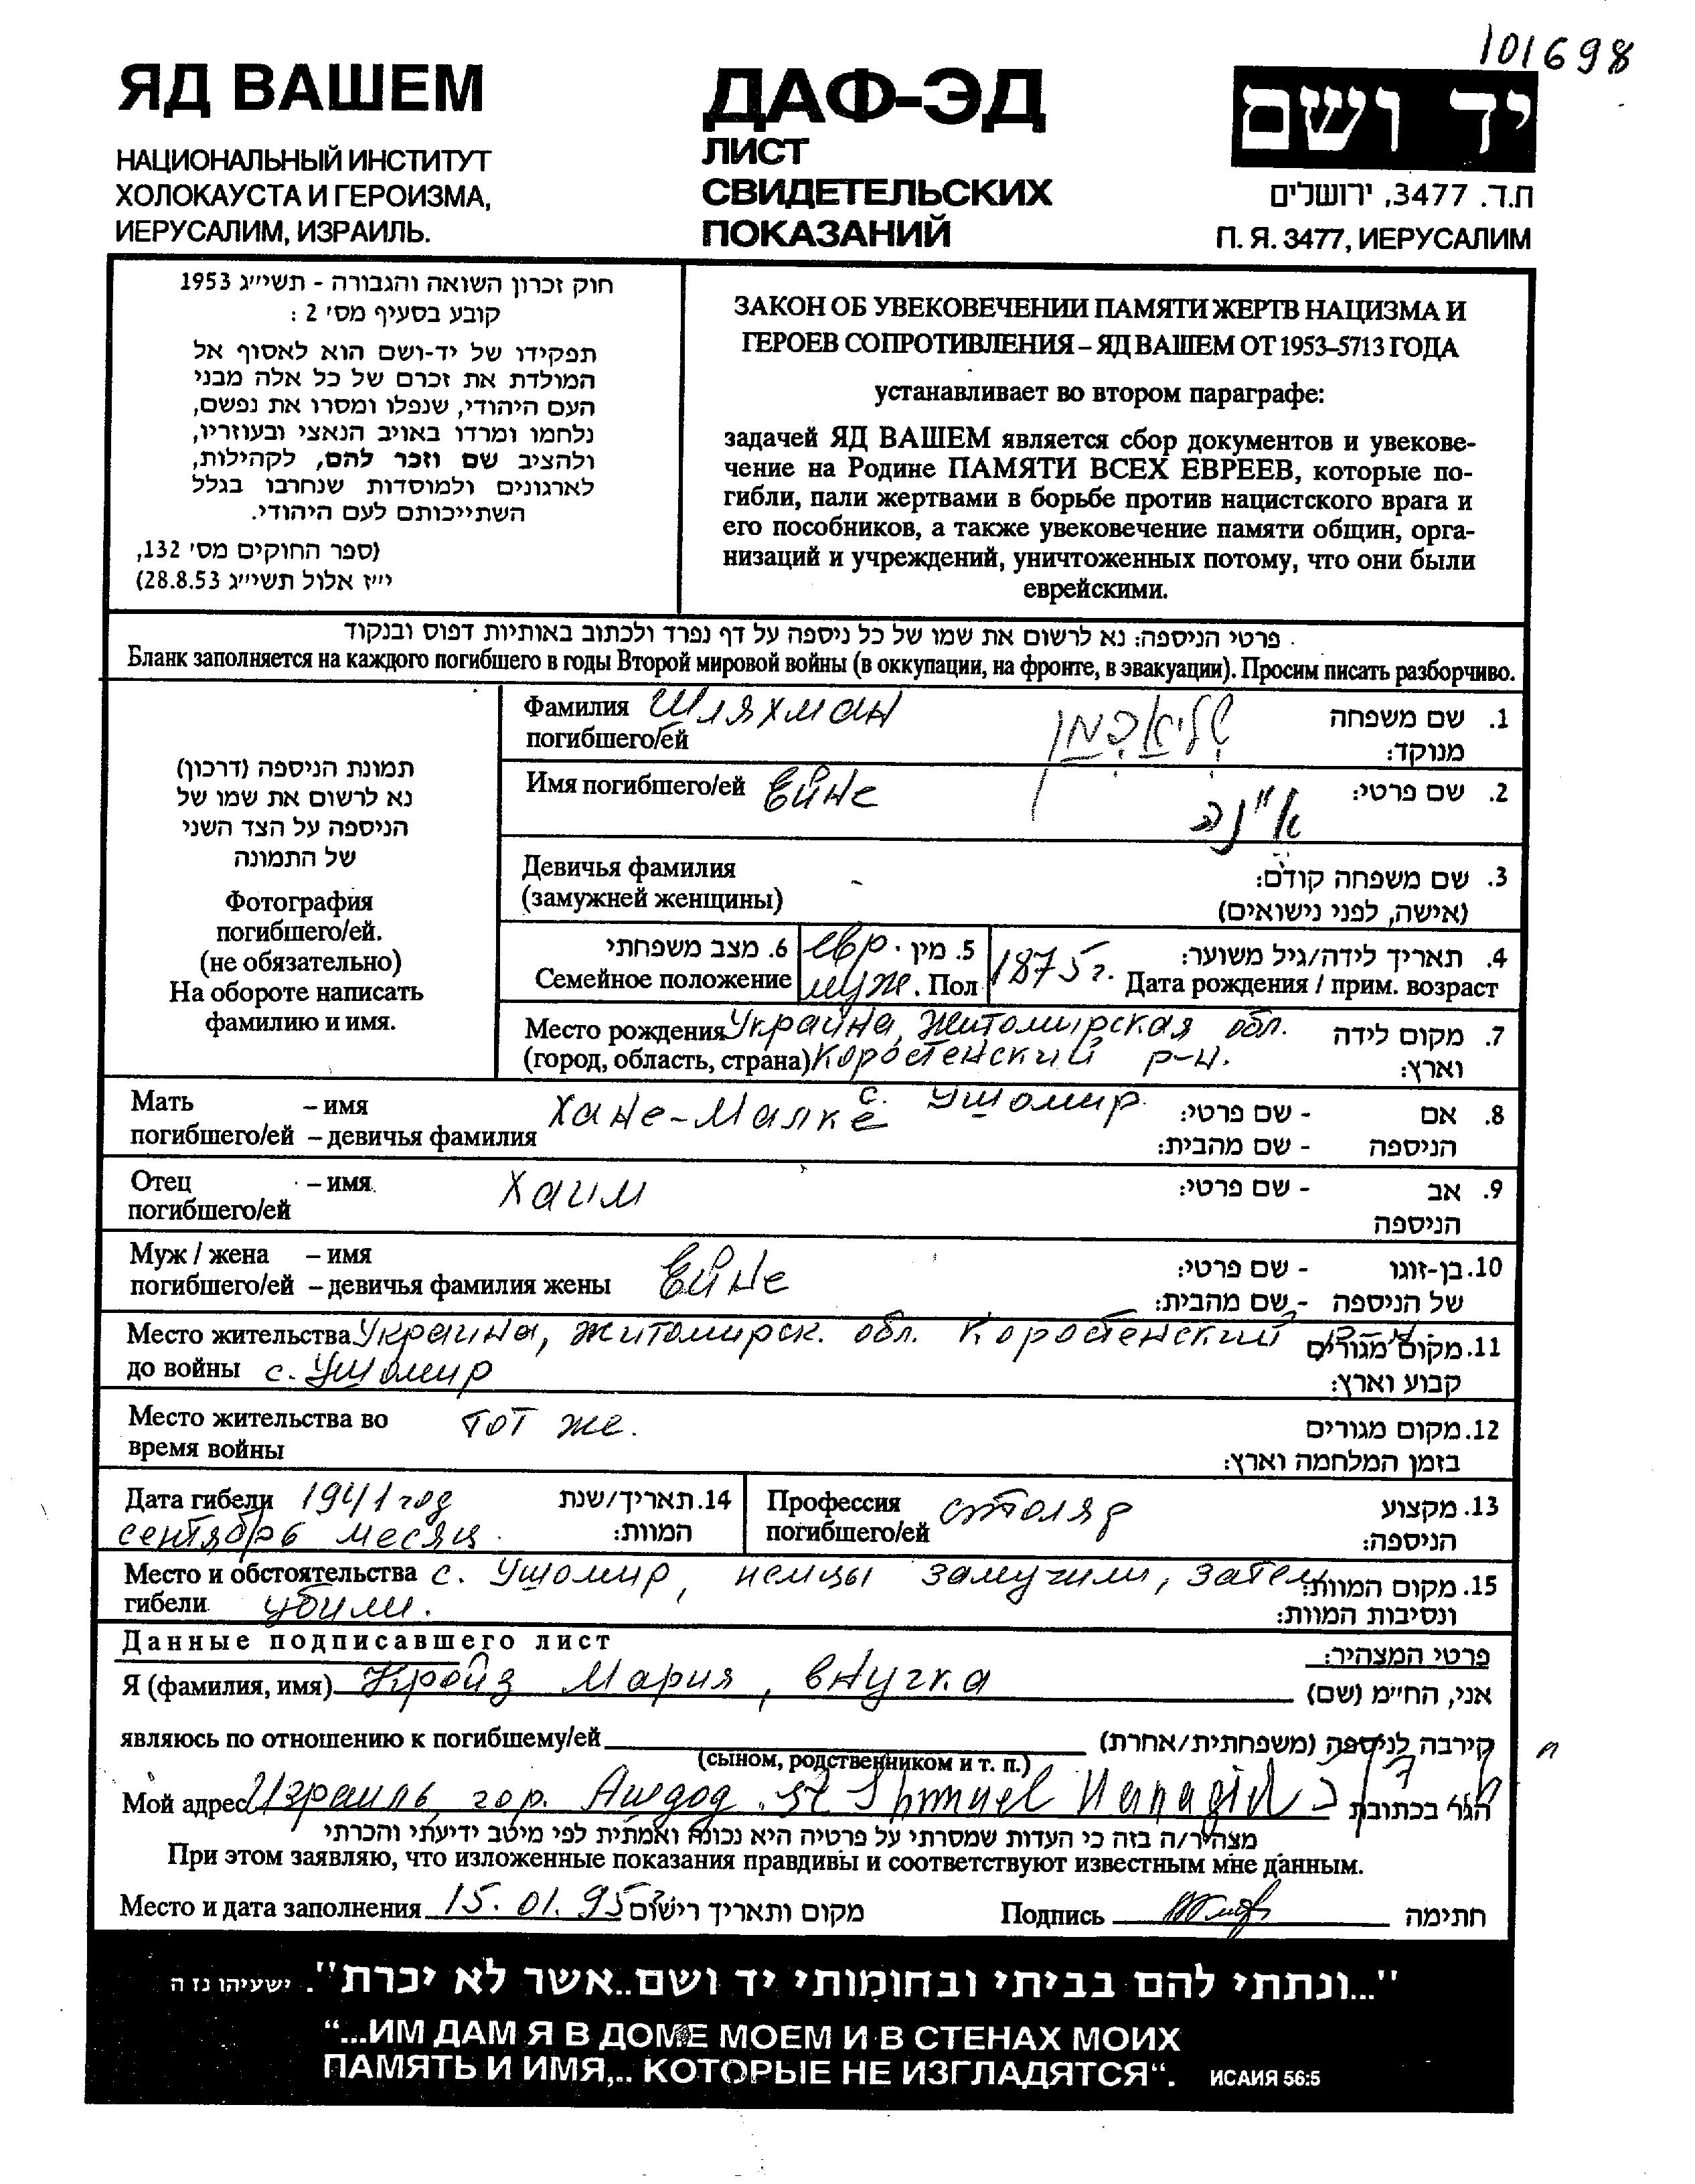 101698
ЯД ВАШЕМ
НАЦИОНАЛЬНЫЙ ИНСТИТУТ
ХОЛОКАУСТА И ГЕРОИЗМА,
ИЕРУСАЛИМ, ИЗРАИЛЬ.
ДАФ-ЭД
ЛИСТ
СВИДЕТЕЛЬСКИХ
ПОКАЗАНИЙ
יד ושם
ת.ד. 3477, ירושלים
П. Я. 3477, ИЕРУСАЛИМ
חוק זכרון השואה והגבורה - תשי״ג 1953
קובע בסעיף מס׳ 2 :
תפקידו של יד-ושם הוא לאסוף אל
המולדת את זכרם של כל אלה מבני
העם היהודי, שנפלו ומסרו את נפשם,
נלחמו ומרדו באויב הנאצי ובעוזריו,
ולהציב שם וזכר להם, לקהילות,
לארגונים ולמוסדות שנחרבו בגלל
השתייכותם לעם היהודי.
(ספר החוקים מס׳ 132,
י״ז אלול תשי״ג 28.8.53)
ЗАКОН ОБ УВЕКОВЕЧЕНИИ ПАМЯТИ ЖЕРТВ НАЦИЗМА И
ГЕРОЕВ СОПРОТИВЛЕНИЯ – ЯД ВАШЕМ ОТ 1953–5713 ГОДА
устанавливает во втором параграфе:
задачей ЯД ВАШЕМ является сбор документов и увекове-
чение на Родине ПАМЯТИ ВСЕХ ЕВРЕЕВ, которые по-
гибли, пали жертвами в борьбе против нацистского врага и
его пособников, а также увековечение памяти общин, орга-
низаций и учреждений, уничтоженных потому, что они были
еврейскими.
פרטי הניספה: נא לרשום את שמו של כל ניספה על דף נפרד ולכתוב באותיות דפוס ובנקוד
Бланк заполняется на каждого погибшего в годы Второй мировой войны (в оккупации, на фронте, в эвакуации). Просим писать разборчиво.
תמונת הניספה (דרכון)
נא לרשום את שמו של
הניספה על הצד השני
של התמונה
Фотография
погибшего/ей.
(не обязательно)
На обороте написать
фамилию и имя.
Фамилия Шляхман שליאכמן 1. שם משפחה
погибшего/ей מנוקד:
Имя погибшего/ей Ейне אײנה 2. שם פרטי:
Девичья фамилия 3. שם משפחה קודם:
(замужней женщины) – (אישה, לפני נישואים)
6. מצב משפחתי евр. 5. מין 4. תאריך לידה/גיל משוער:
Семейное положение муж. Пол 1875 г. Дата рождения / прим. возраст
Место рождения Украина, Житомирская обл. 7. מקום לידה
(город, область, страна) Коростенский р-н. וארץ:
с. Ушомир
Мать – имя Хане-Малке - שם פרטי: 8. אם
погибшего/ей – девичья фамилия - שם מהבית: הניספה
Отец – имя Хаим - שם פרטי: 9. אב
погибшего/ей הניספה
Муж / жена – имя Ейне - שם פרטי: 10. בן-זוגו
погибшего/ей – девичья фамилия жены - שם מהבית: של הניספה
Место жительства Украина, Житомирск. обл. Коростенский р-н. 11. מקום מגורים
до войны с. Ушомир קבוע וארץ:
Место жительства во тот же. 12. מקום מגורים
время войны בזמן המלחמה וארץ:
Дата гибели 1941 год 14. תאריך/שנת
сентябрь месяц. המוות:
Профессия столяр 13. מקצוע
погибшего/ей הניספה:
Место и обстоятельства с. Ушомир, немцы замучили, затем 15. מקום המוות
гибели убили. ונסיבות המוות:
Данные подписавшего лист פרטי המצהיר:
Я (фамилия, имя) Кройз Мария, внучка אני, הח״מ (שם)
являюсь по отношению к погибшему/ей קירבה לניספה (משפחתית/אחרת)
(сыном, родственником и т. п.)
Мой адрес Израиль, гор. Ашдод. st Shmuel Hanagid הגר בכתובת
מצהיר/ה בזה כי העדות שמסרתי על פרטיה היא נכונה ואמתית לפי מיטב ידיעתי והכרתי
При этом заявляю, что изложенные показания правдивы и соответствуют известным мне данным.
Место и дата заполнения 15.01.95 מקום ותאריך רישום Подпись חתימה
״...ונתתי להם בביתי ובחומותי יד ושם..אשר לא יכרת״. ישעיהו נז ה
“...ИМ ДАМ Я В ДОМЕ МОЕМ И В СТЕНАХ МОИХ
ПАМЯТЬ И ИМЯ,.. КОТОРЫЕ НЕ ИЗГЛАДЯТСЯ“. ИСАИЯ 56:5